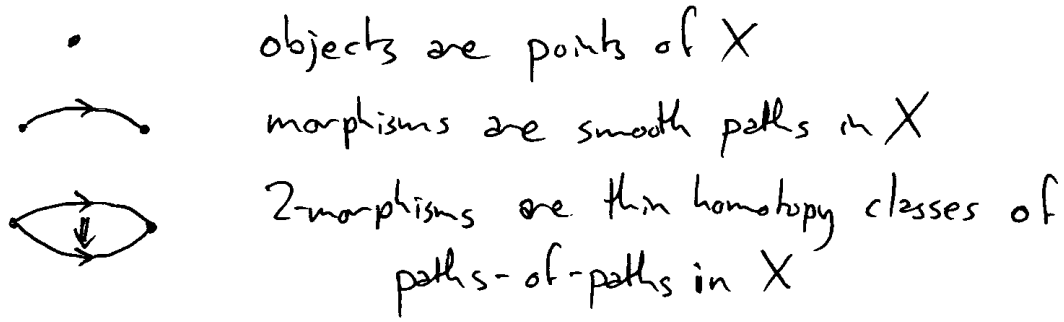 objects are points of X
morphisms are smooth paths in X
2-morphisms are thin homotopy classes of
paths-of-paths in X